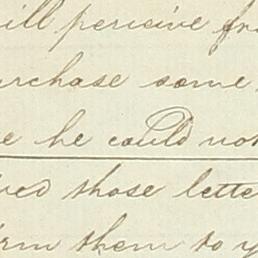 ill perceive fr
urchase some
e he could not
ved those lette
rm them to y